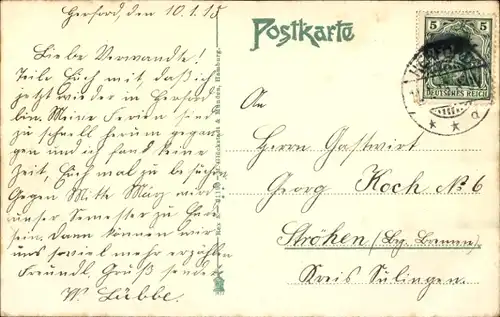 Herford, den 10.1.15
Postkarte
5 5
DEUTSCHES REICH
Liebe Verwandte!
Teile Euch mit daß ich
jetzt wieder in Herford
bin. Meine Ferien sind zu
zu schnell herum gegan-
gen und ich fand keine
Zeit, Euch mal zu besuchen.
Gegen Mitte März wird
unser Semester zu Ende
sein. Dann können wir
uns soviel mehr erzählen
Freundl. Gruß sendet
W. Lübbe.
An
Herrn Gastwirt
Georg Koch No 6
Ströhen (Bz. Bremen)
Kreis Sulingen.
Knackstedt & Näther, Hamburg.